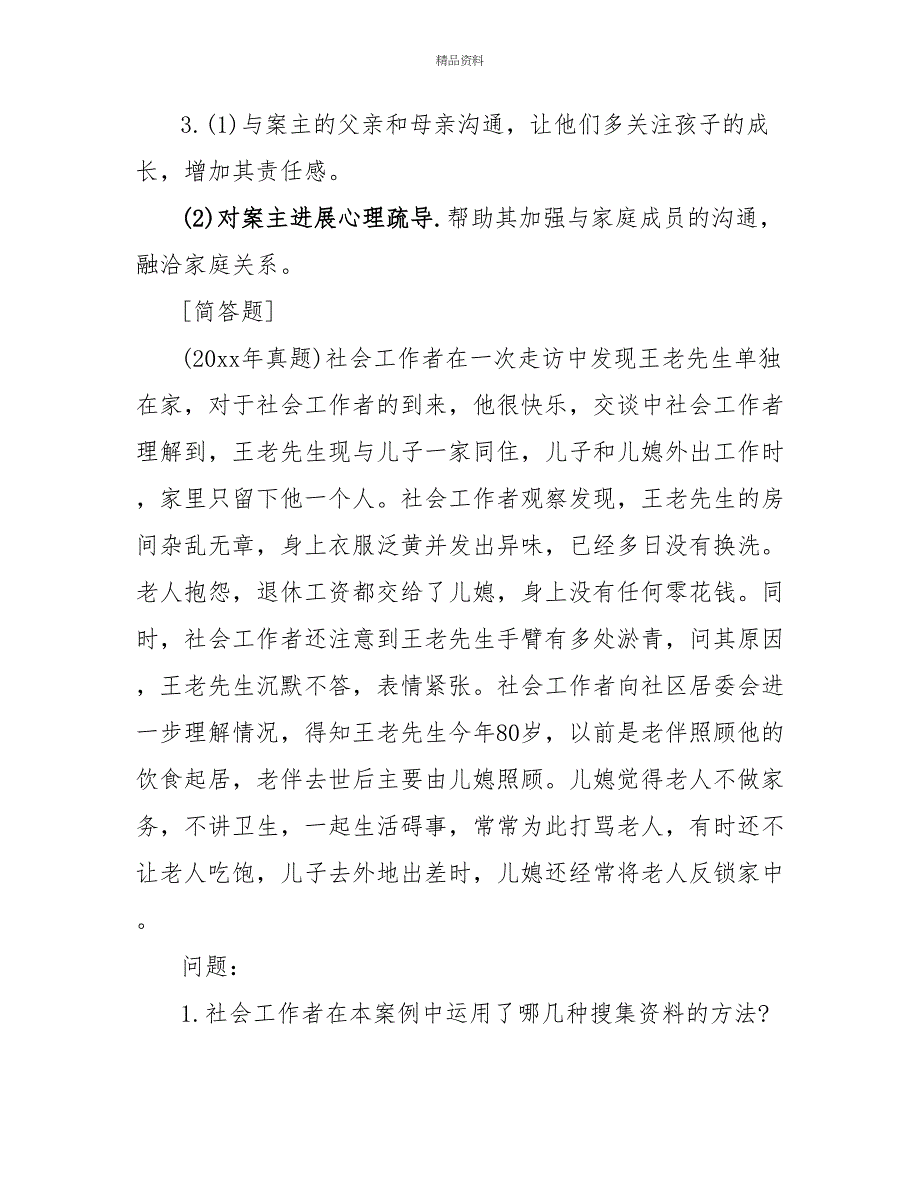 精品资料
3.(1)与案主的父亲和母亲沟通，让他们多关注孩子的成
长，增加其责任感。
(2)对案主进展心理疏导.帮助其加强与家庭成员的沟通，
融洽家庭关系。
[简答题]
(20xx年真题)社会工作者在一次走访中发现王老先生单独
在家，对于社会工作者的到来，他很快乐，交谈中社会工作者
理解到，王老先生现与儿子一家同住，儿子和儿媳外出工作时
，家里只留下他一个人。社会工作者观察发现，王老先生的房
间杂乱无章，身上衣服泛黄并发出异味，已经多日没有换洗。
老人抱怨，退休工资都交给了儿媳，身上没有任何零花钱。同
时，社会工作者还注意到王老先生手臂有多处淤青，问其原因
，王老先生沉默不答，表情紧张。社会工作者向社区居委会进
一步理解情况，得知王老先生今年80岁，以前是老伴照顾他的
饮食起居，老伴去世后主要由儿媳照顾。儿媳觉得老人不做家
务，不讲卫生，一起生活碍事，常常为此打骂老人，有时还不
让老人吃饱，儿子去外地出差时，儿媳还经常将老人反锁家中
。
问题：
1.社会工作者在本案例中运用了哪几种搜集资料的方法?